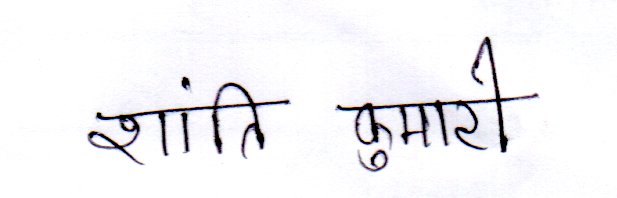 शांति कुमारी